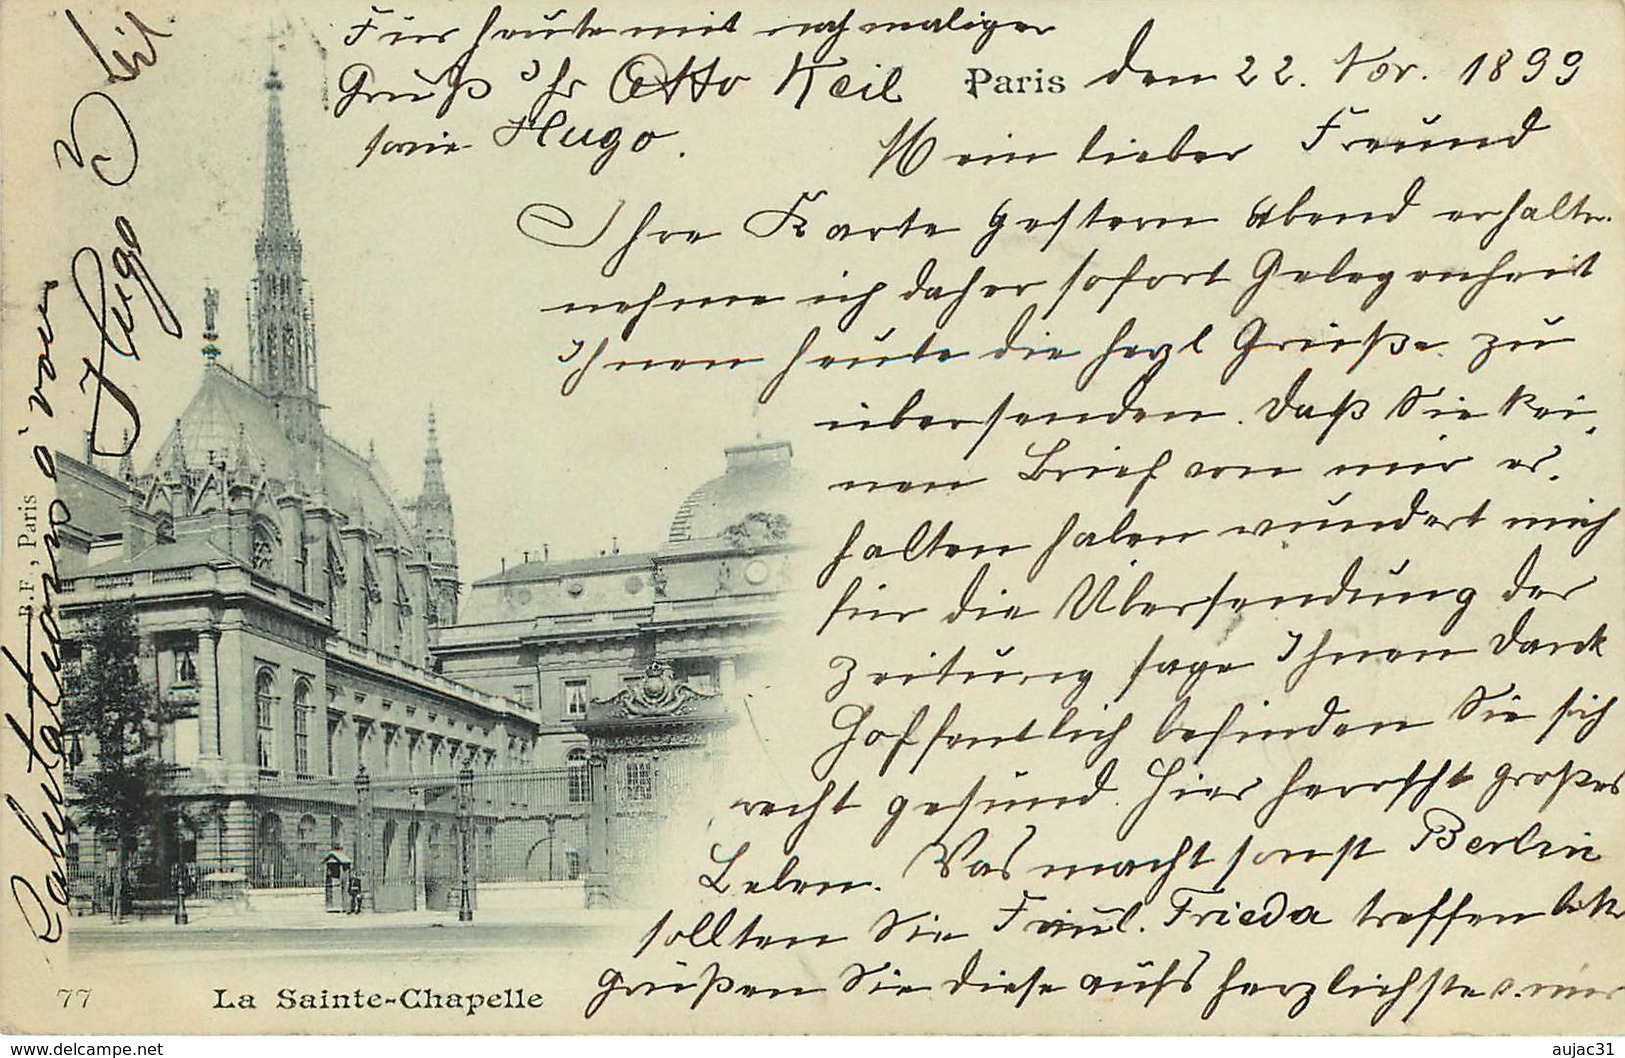 Paris den 22. Nov. 1899
Mein lieber Freund
Ihre Karte gestern Abend erhalten
nehme ich daher sofort Gelegenheit
Ihnen heute die herzl Grüße zu
übersenden. Daß Sie kei-
nen Brief von mir er-
halten haben wundert mich
für die Übersendung der
Zeitung sage Ihnen Dank
Hoffentlich befinden Sie sich
recht gesund. Hier herrscht großes
Leben. Was macht sonst Berlin
sollten Sie Fräul. Frieda treffen bitte
grüßen Sie diese aufs herzlichste v. mir
Für heute mit nochmaliger
Gruß Ihr Otto Keil
sowie Hugo.
Salutations à vous
Hugo Keil
B.F., Paris
77 La Sainte-Chapelle
www.delcampe.net aujac31